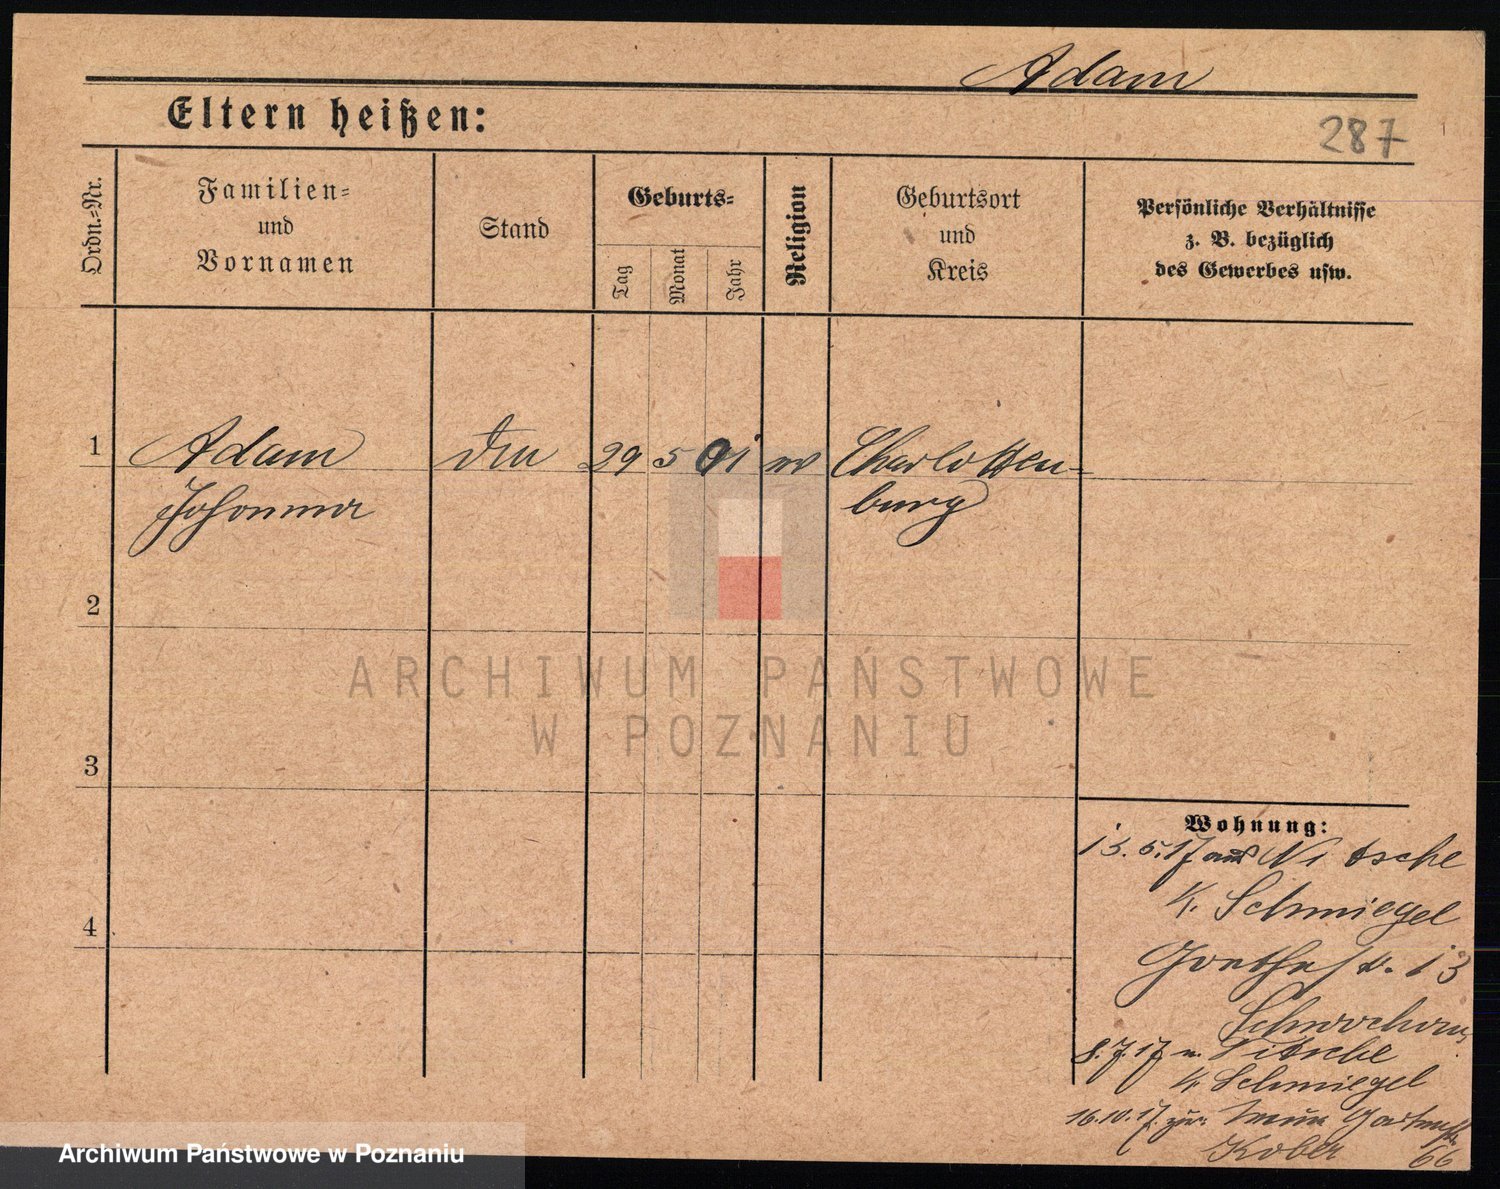 Adam
Eltern heißen:
287
Ordn.-Nr.
Familien-
und
Vornamen
Stand
Geburts-
Tag
Monat
Jahr
Religion
Geburtsort
und
Kreis
Persönliche Verhältnisse
z. B. bezüglich
des Gewerbes usw.
1
Adam
29 5 91
Charlotten-
Johanna
burg
2
ARCHIWUM PAŃSTWOWE
W POZNANIU
3
Wohnung:
13.5.17 aus Nitsche
K. Schmiegel
4
Goethestr. 13
8.7.17 n. Nitsche
K. Schmiegel
16.10.17 zur.
Kober 66
Archiwum Państwowe w Poznaniu